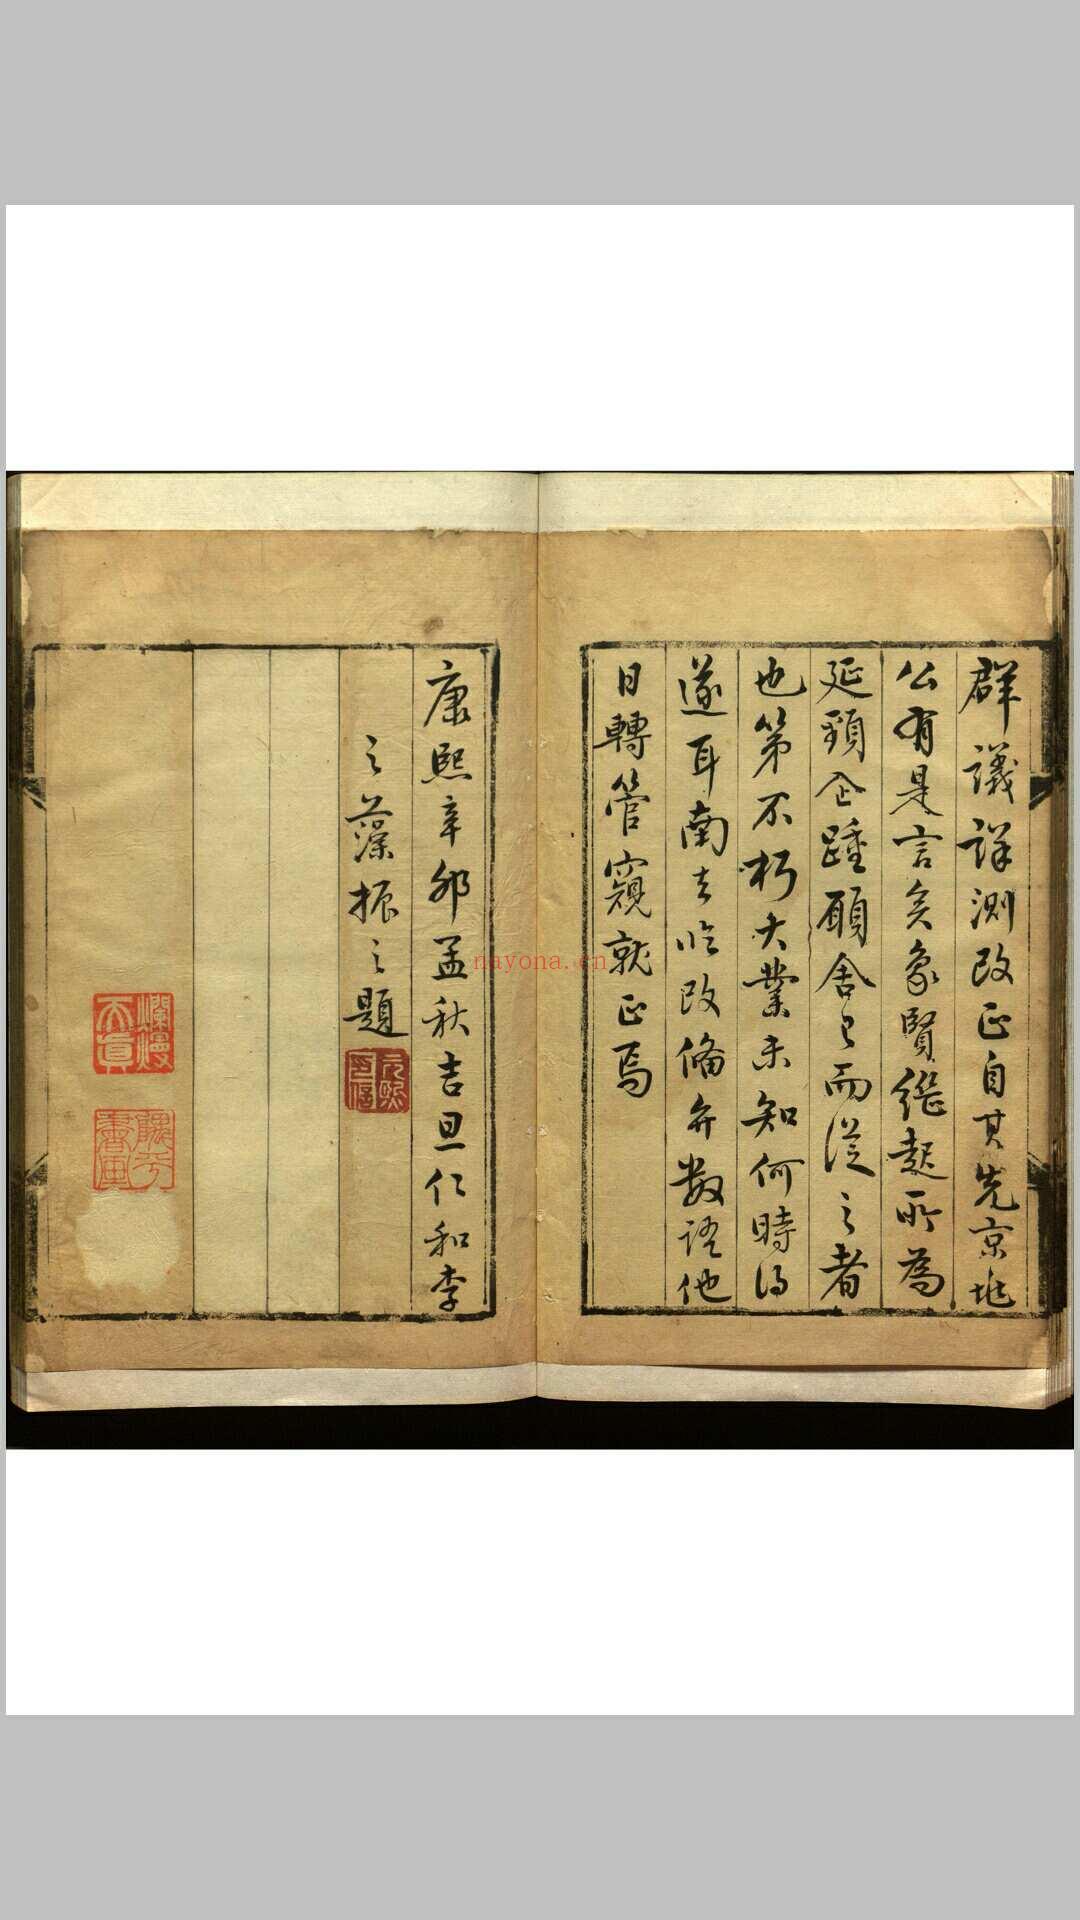 群議詳測改正自其先京兆
公有是言矣象賢繼起所為
延頸企踵願舍己而從之者
也第不朽大業未知何時得
遂耳南去臨改偹弁數語他
日轉管窺就正焉
康熙辛卯孟秋吉旦仁和李
之藻振之題
爛熳天真
nayona.cn